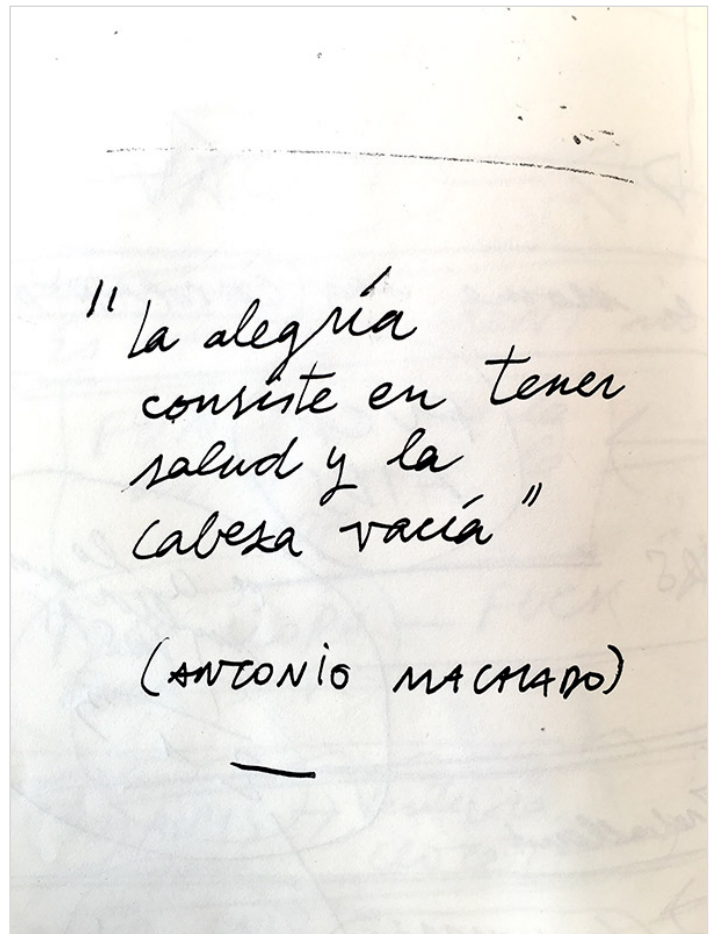 "La alegría
consiste en tener
salud y la
cabeza vacía"
(ANTONIO MACHADO)